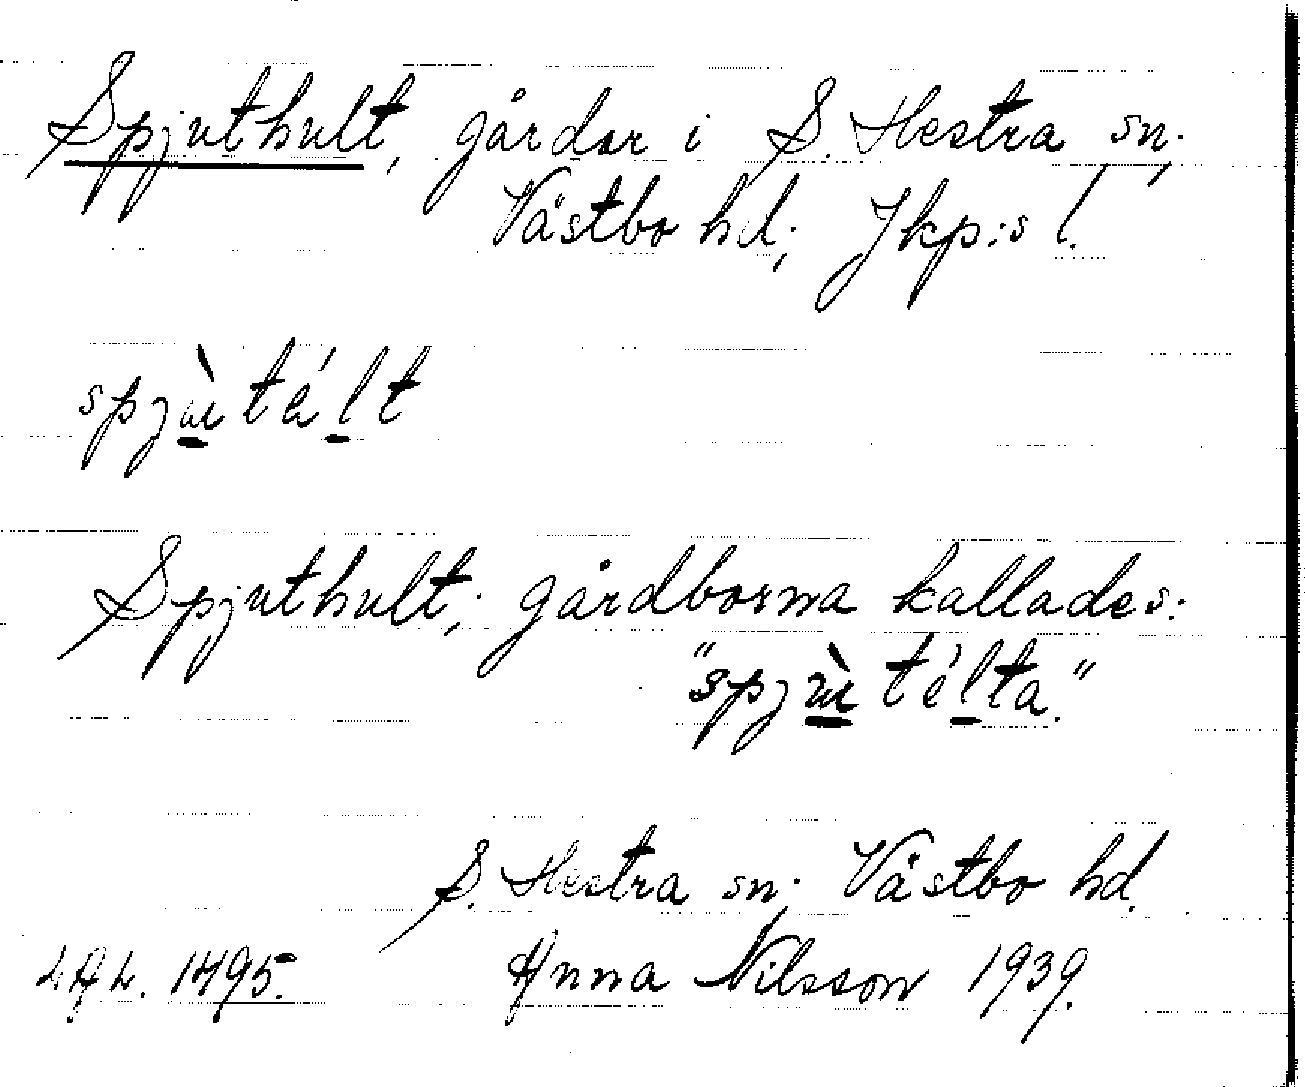 Spjuthult, gårdar i S. Hestra sn.,
Västbo hd.; Jkp:s l.
spjùtélt
Spjuthult; gårdborna kallades:
"spjùtélta."
S. Hestra sn; Västbo hd.
1495. Anna Nilsson 1939.